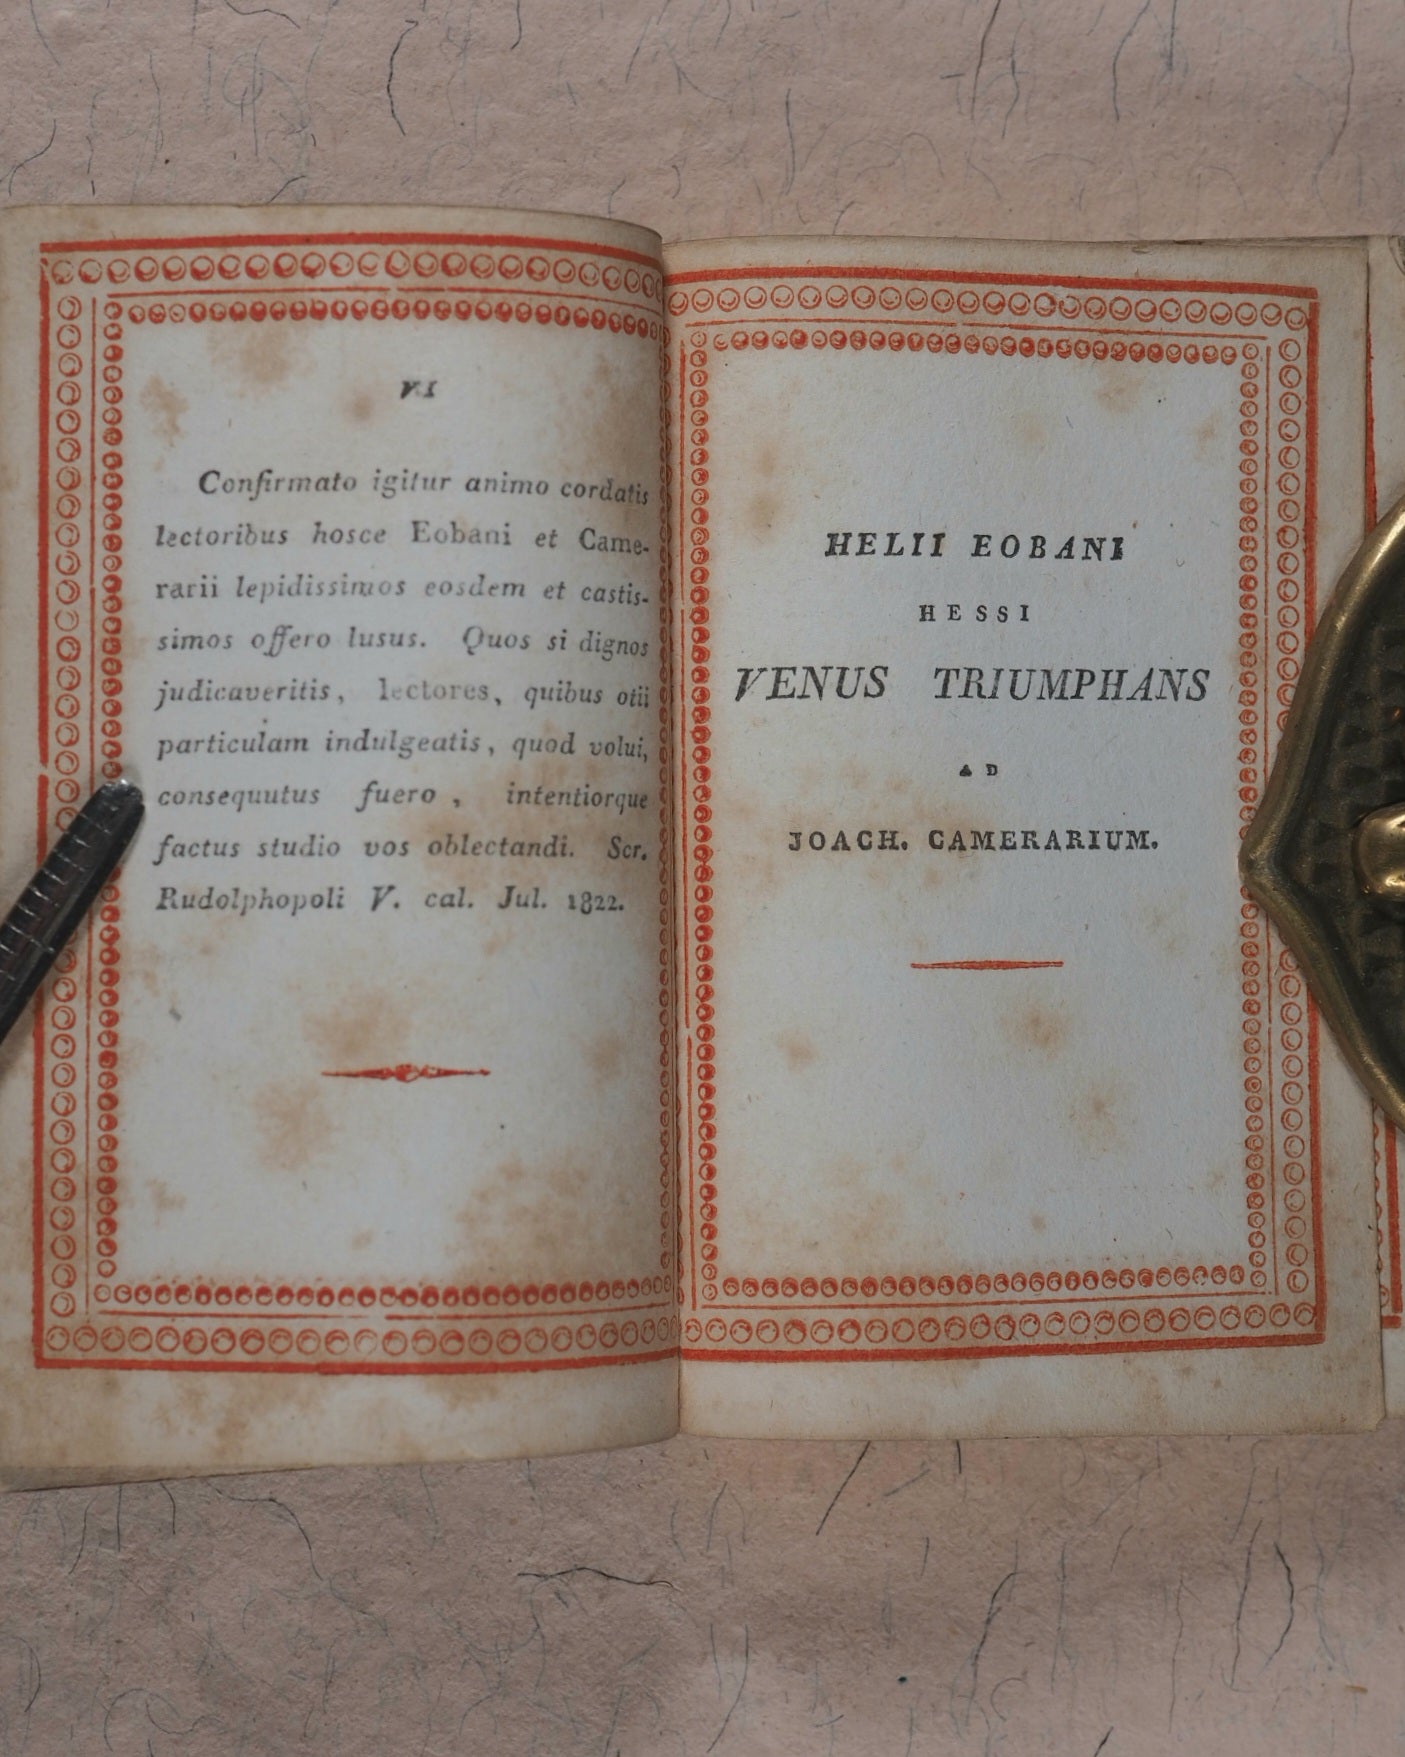 VI
Confirmato igitur animo cordatis
lectoribus hosce Eobani et Came-
rarii lepidissimos eosdem et castis-
simos offero lusus. Quos si dignos
judicaveritis, lectores, quibus otii
particulam indulgeatis, quod volui,
consequutus fuero, intentiorque
factus studio vos oblectandi. Scr.
Rudolphopoli V. cal. Jul. 1822.
HELII EOBANI
HESSI
VENUS TRIUMPHANS
AD
JOACH. CAMERARIUM.